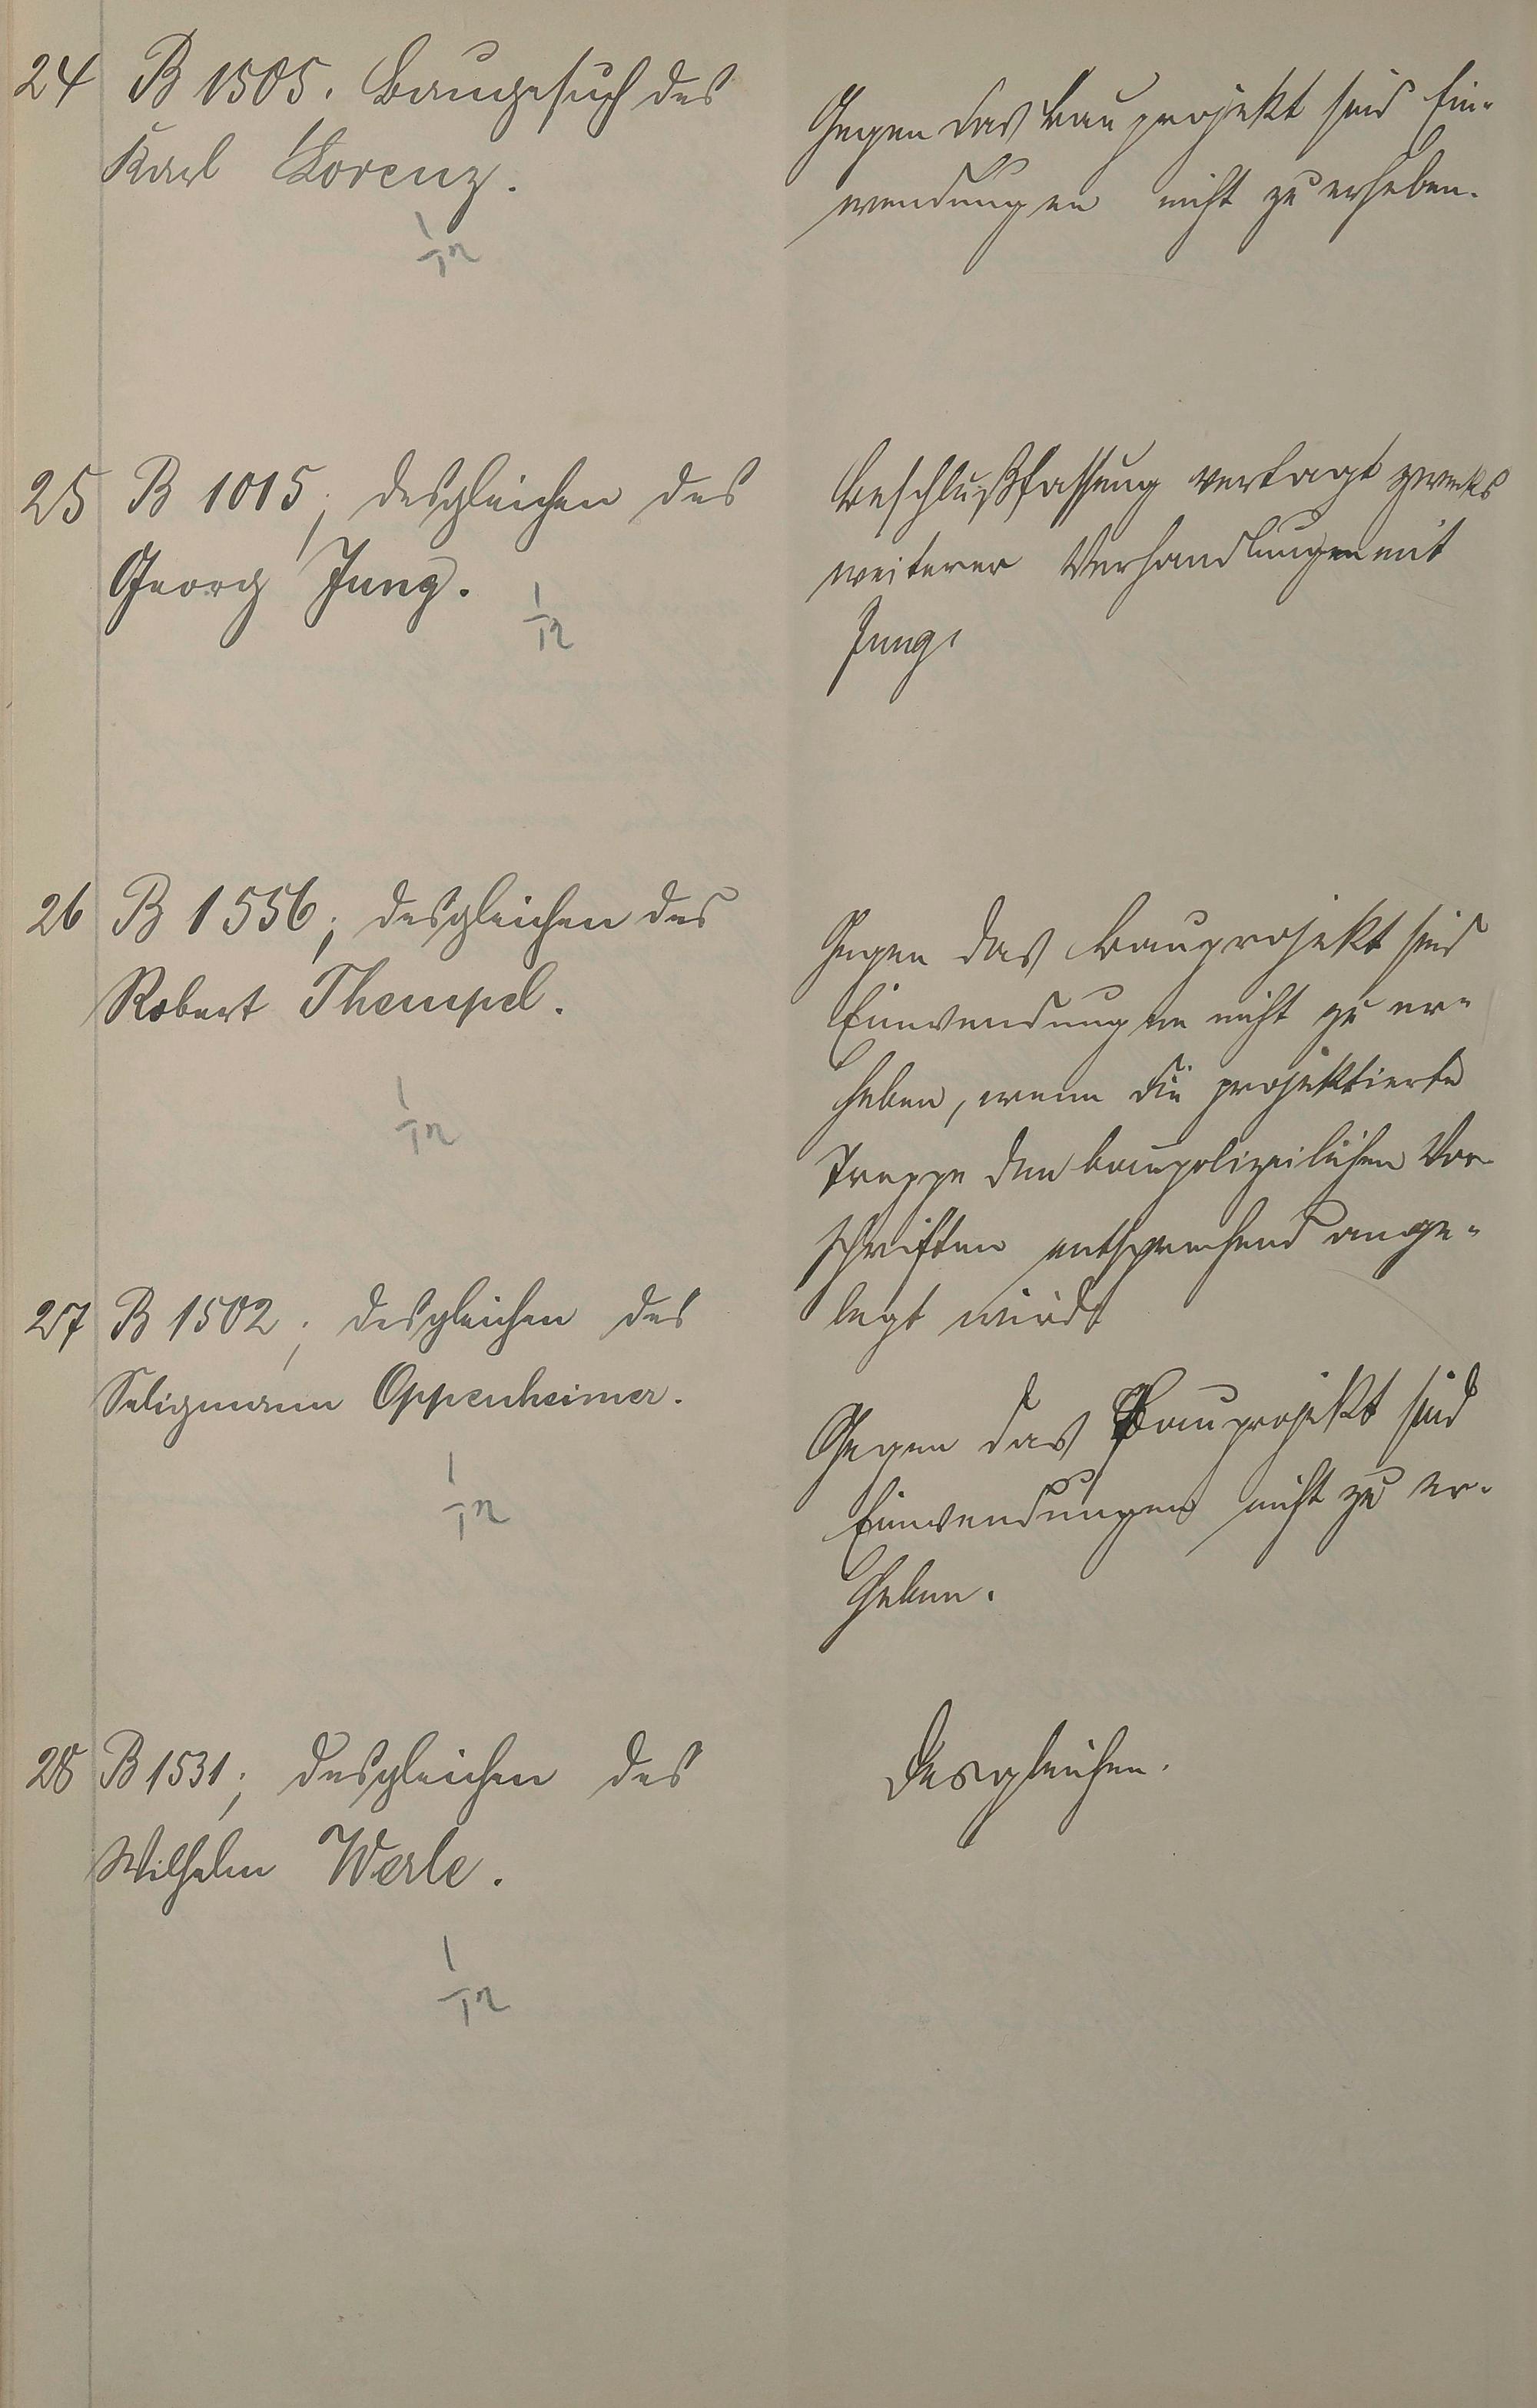 24 B 1505. Baugesuch des
Karl Lorenz.
Gegen das Bauprojekt sind Ein-
wendungen nicht zu erheben.
25 B 1015; desgleichen des
Georg Jung.
Beschlußfassung vertagt zwecks
weiterer Verhandlungen mit
Jung.
26 B 1556; desgleichen des
Robert Thempel.
Gegen das Bauprojekt sind
Einwendungen nicht zu er-
heben, wenn die projektierte
Treppe den baupolizeilichen Vor-
schriften entsprechend ange-
legt wird.
27 B 1502; desgleichen des
Seligmann Oppenheimer.
Gegen das Bauprojekt sind
Einwendungen nicht zu er-
heben.
28 B 1531; desgleichen des
Wilhelm Werle.
Desgleichen.